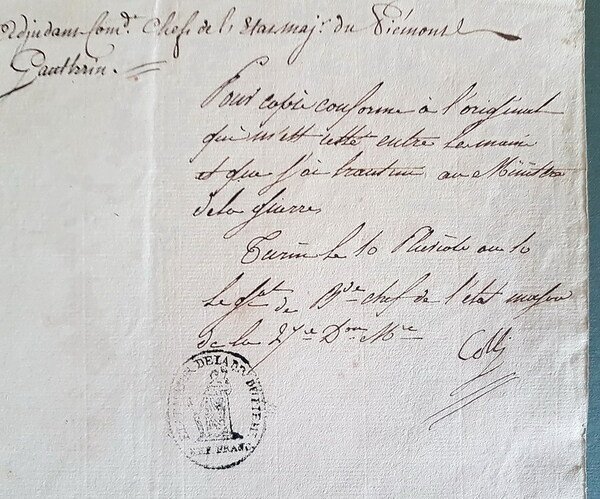 adjudant Com.t Chef de l' Etat maj.r du Piémont
Gauthrin.
Pour copie conforme à l'original
qui m'est resté entre les mains
et que j'ai transmis au Ministre
de la guerre
Turin le 10 Pluviôse an 10
Le g.al de B.de chef de l'état major
de la 27.e D.on M.re
Colli
DE LA
REP FRANC